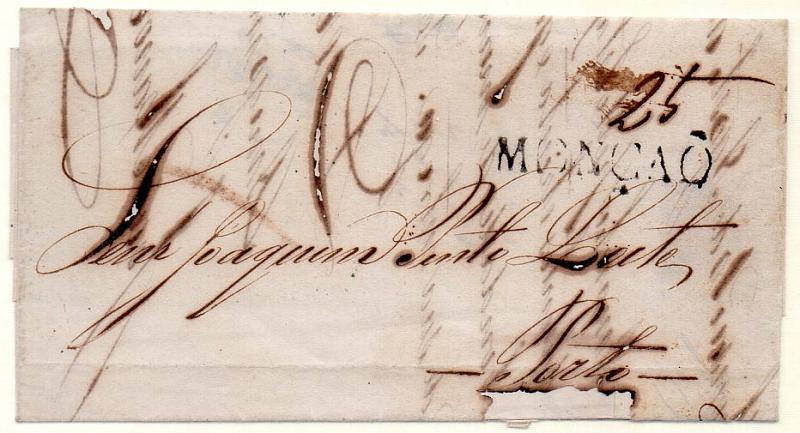 25
MONÇAÕ
Senr Joaquim Pinto Leite
— Porto —